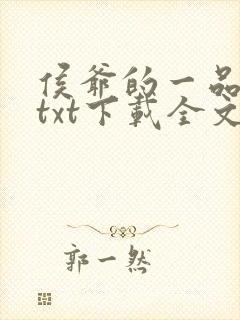 侯爷的一品
txt下载全文
郭一然